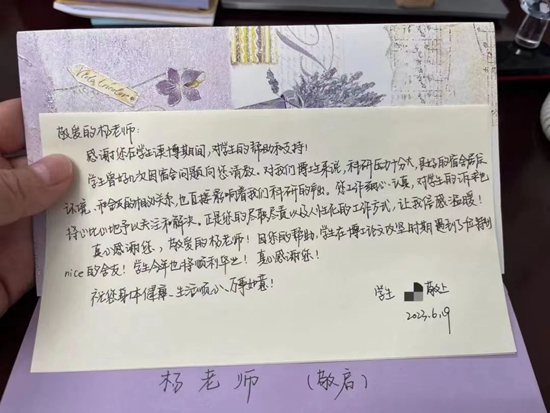 敬爱的杨老师:
感谢您在学生读博期间,对学生的帮助和支持!
学生曾好几次因宿舍问题向您请教。对我们博士生来说,科研压力十分大,良好的宿舍居住
环境、和舍友的相处关系,也直接影响着我们科研的产出。您工作细心、认真,对学生的诉求也
将心比心地予以关注和解决。正是您的尽职尽责以及人性化的工作方式,让我倍感温暖!
真心感谢您,敬爱的杨老师!因您的帮助,学生在博士论文攻坚时期遇到了一位特别
nice的舍友!学生今年也将顺利毕业!真心感谢您!
祝您身体健康、生活顺心、万事如意!
学生 敬上
2023.6.19
杨老师 (敬启)